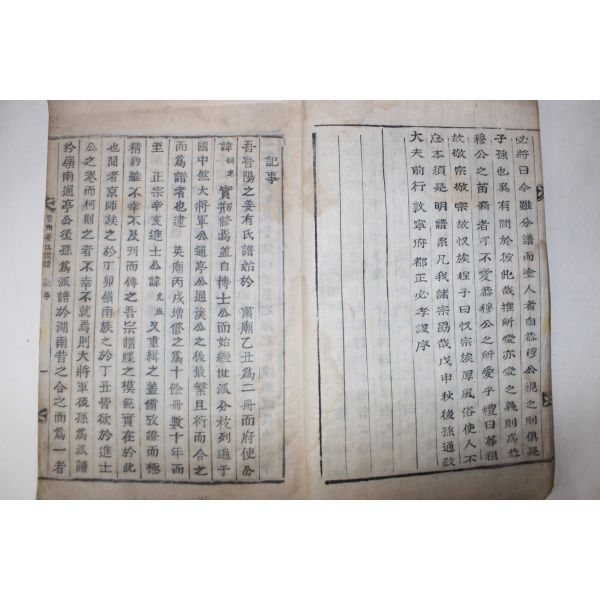 必將曰今雖分譜而僉人者自恭穆公視之則俱是
子孫也奚有間於彼此哉推所愛亦愛之義則為恭
穆公之苗裔者可不愛恭穆公之所愛乎禮曰尊祖
故敬宗敬宗故收族程子曰收宗族厚風俗使人不
忘本須是明譜系凡我諸宗勗哉戊申秋後孫通政
大夫前行敦寧府都正必孝謹序
記事
吾晋陽之姜有氏譜始於 肅廟乙丑為二冊而府使公
諱 實刱修焉盖自博士公而始継世派分枝列遍于
國中然大將軍公通亭公通溪公之後最繁且術而合之
而為譜者也逮 英廟丙戌增修之為十餘冊數十年而
至 正宗辛亥進士公諱 又重緝之盖備攷證而極
精約雖不幸不及刋而傳之吾宗譜牒之模範實在於此
也聞者京師族之於丁卯嶺南族之於丁丑皆欲於進士
公之卷而柯則之者不幸不就焉則大將軍後孫為派譜
於嶺南通亭公後孫為派譜於湖南昔之合之而為一者
晋州姜氏世譜 記事 一